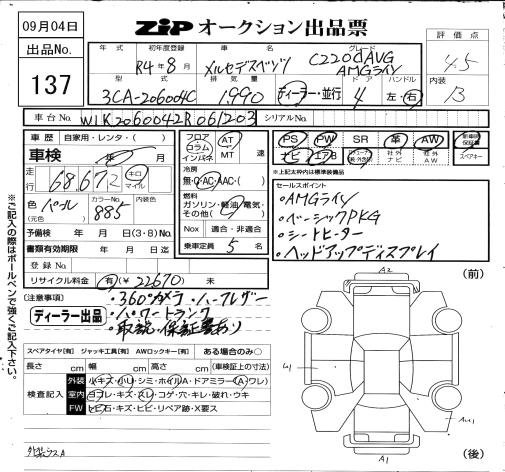 09月04日
ZIP オークション出品票
出品No.
137
年式
初年度登録
R4年8月
車名
メルセデスベンツ
グレード
C220dAVG
AMGライン
評価点
4.5
内装
B
型式
3CA-206004C
排気量
1,990
ディーラー・並行
ドア
4
ハンドル
左・右
車台No.
W1K2060042R061203
シリアルNo.
車歴 自家用・レンタ( )
車検 年 月
走行 68,672 キロ マイル
色(元色) パール
カラーNo. 885
内装色
予備検 年 月 日(3・8)No.
書類有効期限 年 月 日
登録No.
リサイクル料金 有(¥22670) 未
フロア
コラム
インパネ
AT
MT
速
冷房
無・C・AC・AAC・( )
燃料
ガソリン・軽油・電気・
その他( )
Nox 適合・非適合
乗車定員 5 名
PS PW SR 革 AW
ナビ エアB
社外ナビ
社外AW
新車時保証書
スペアキー
※上記太枠内は減点対象
セールスポイント
・AMGライン
・ベーシックPKG
・シートヒーター
・ヘッドアップディスプレイ
(注意事項)
・360°カメラ・ハーフレザー
ディーラー出品
・パワートランク
・取説・保証書あり
スペアタイヤ[有] ジャッキ工具[有] AWロックキー[有] ある場合のみ〇
長さ cm 幅 cm 高さ cm (車検証上の寸法)
検査記入
外装 小キズ・小U・シミ・ホイルA・ドアミラー(A・ワレ)
室内 ヨゴレ・キズ・スレ・コゲ・穴・キレ・破れ・ウキ
FW ヒビ石・キズ・ヒビ・リペア跡・X要ス
※ご記入の際はボールペンで強くご記入下さい。
(前)
A2
U1
A1
(後)